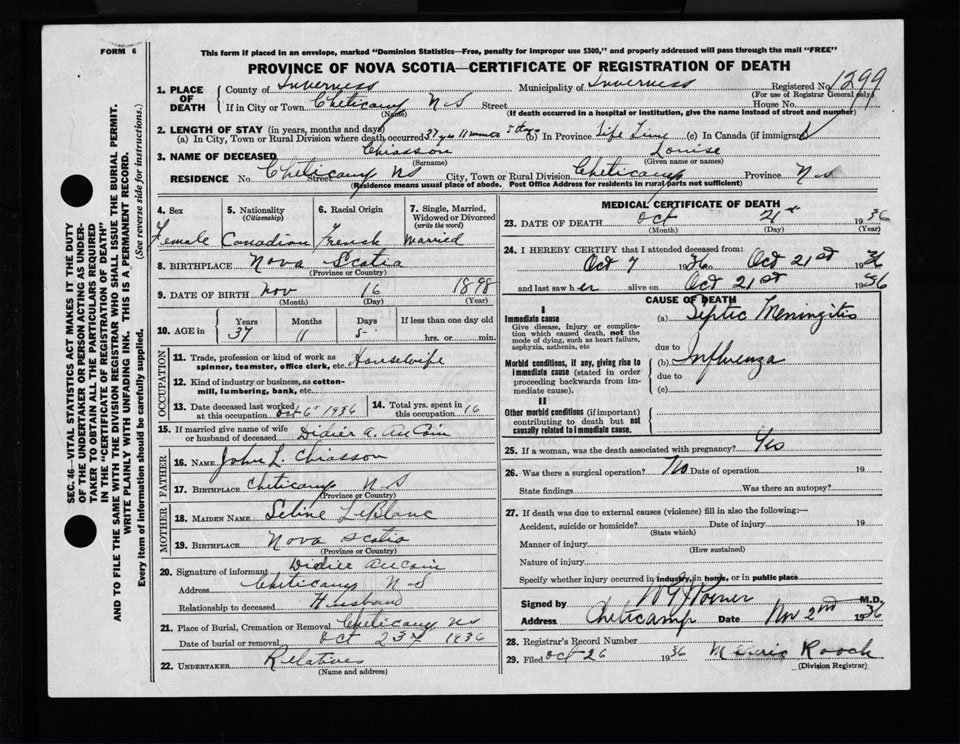 FORM 6
This form if placed in an envelope, marked "Dominion Statistics—Free, penalty for improper use $300," and properly addressed will pass through the mail "FREE"
PROVINCE OF NOVA SCOTIA—CERTIFICATE OF REGISTRATION OF DEATH
SEC. 46—VITAL STATISTICS ACT MAKES IT THE DUTY
OF THE UNDERTAKER OR PERSON ACTING AS UNDER-
TAKER TO OBTAIN ALL THE PARTICULARS REQUIRED
IN THE "CERTIFICATE OF REGISTRATION OF DEATH"
AND TO FILE THE SAME WITH THE DIVISION REGISTRAR WHO SHALL ISSUE THE BURIAL PERMIT.
WRITE PLAINLY WITH UNFADING INK. THIS IS A PERMANENT RECORD.
Every item of information should be carefully supplied. (See reverse side for instructions.)
1. PLACE OF DEATH
County of Inverness Municipality of Inverness Registered No. 1299
(For use of Registrar General only)
If in City or Town Cheticamp N S Street House No.
(Name) (If death occurred in a hospital or institution, give the name instead of street and number)
2. LENGTH OF STAY (in years, months and days)
(a) In City, Town or Rural Division where death occurred 37 yrs 11 months 5 days (b) In Province Life Time (c) In Canada (if immigrant)
3. NAME OF DECEASED Chiasson Louise
(Surname) (Given name or names)
RESIDENCE No. Cheticamp NS Street City, Town or Rural Division Cheticamp Province N S
(Residence means usual place of abode. Post Office Address for residents in rural parts not sufficient)
4. Sex 5. Nationality (Citizenship) 6. Racial Origin 7. Single, Married, Widowed or Divorced (write the word)
Female Canadian French Married
8. BIRTHPLACE Nova Scotia
(Province or Country)
9. DATE OF BIRTH Nov 16 1898
(Month) (Day) (Year)
10. AGE in Years Months Days If less than one day old
37 11 5 hrs. or min.
OCCUPATION
11. Trade, profession or kind of work as
spinner, teamster, office clerk, etc. Housewife
12. Kind of industry or business, as cotton-
mill, lumbering, bank, etc.
13. Date deceased last worked
at this occupation Oct 6th 1936
14. Total yrs. spent in
this occupation 16
15. If married give name of wife
or husband of deceased Didier A. AuCoin
FATHER
16. NAME John L. Chiasson
17. BIRTHPLACE Cheticamp N S
(Province or Country)
MOTHER
18. MAIDEN NAME Seline LeBlanc
19. BIRTHPLACE Nova Scotia
(Province or Country)
20. Signature of informant Didier AuCoin
Address Cheticamp N-S
Relationship to deceased Husband
21. Place of Burial, Cremation or Removal Cheticamp NS
Date of burial or removal Oct 23rd 1936
22. UNDERTAKER Relatives
(Name and address)
MEDICAL CERTIFICATE OF DEATH
23. DATE OF DEATH Oct 21st 1936
(Month) (Day)
24. I HEREBY CERTIFY that I attended deceased from:
Oct 7 1936 to Oct 21st 1936
and last saw her alive on Oct 21st 1936
CAUSE OF DEATH
I
Immediate cause (a) Septic Meningitis
Give disease, injury or complica-
tion which caused death, not the
mode of dying, such as heart failure,
asphyxia, asthenia, etc
due to
Morbid conditions, if any, giving rise to
immediate cause (stated in order
proceeding backwards from im-
mediate cause).
(b) Influenza
due to
(c)
II
Other morbid conditions (if important)
contributing to death but not
causally related to immediate cause.
25. If a woman, was the death associated with pregnancy? Yes
26. Was there a surgical operation? No Date of operation 19
State findings Was there an autopsy?
27. If death was due to external causes (violence) fill in also the following:—
Accident, suicide or homicide? Date of injury 19
(State which)
Manner of injury
(How sustained)
Nature of injury
Specify whether injury occurred in industry, in home, or in public place
Signed by M.D.
Address Cheticamp Date Nov 2nd 1936
28. Registrar's Record Number
29. Filed Oct 26 1936 Roach
(Division Registrar)